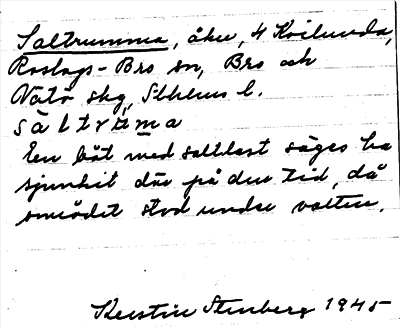 Saltrumma, åker, 4 Kvilunda,
Roslags-Bro sn, Bro och
Vätö skg, Sthlms l.
sàltrùma
En båt med saltlast säges ha
sjunkit där på den tid, då
området stod under vatten.
Kerstin Stenberg 1945